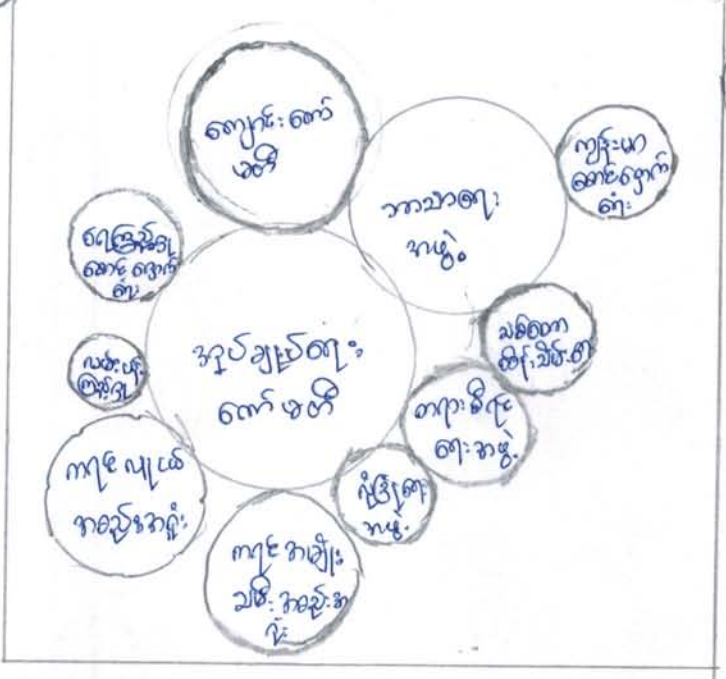 ကျောင်းကော်
မတီ
ဘာသာရေး
အဖွဲ့
ကျန်းမာ
စောင့်ရှောက်
ရေး
စောင့်ရှောက်
ရေး
အုပ်ချုပ်ရေး
ကော်မတီ
သစ်တော
ထိန်းသိမ်းရေး
တရားစီရင်
ရေးအဖွဲ့
လုံခြုံရေး
အဖွဲ့
ကရင်လူငယ်
အစည်းအရုံး
ကရင်အမျိုး
သမီးအစည်းအ
ရုံး